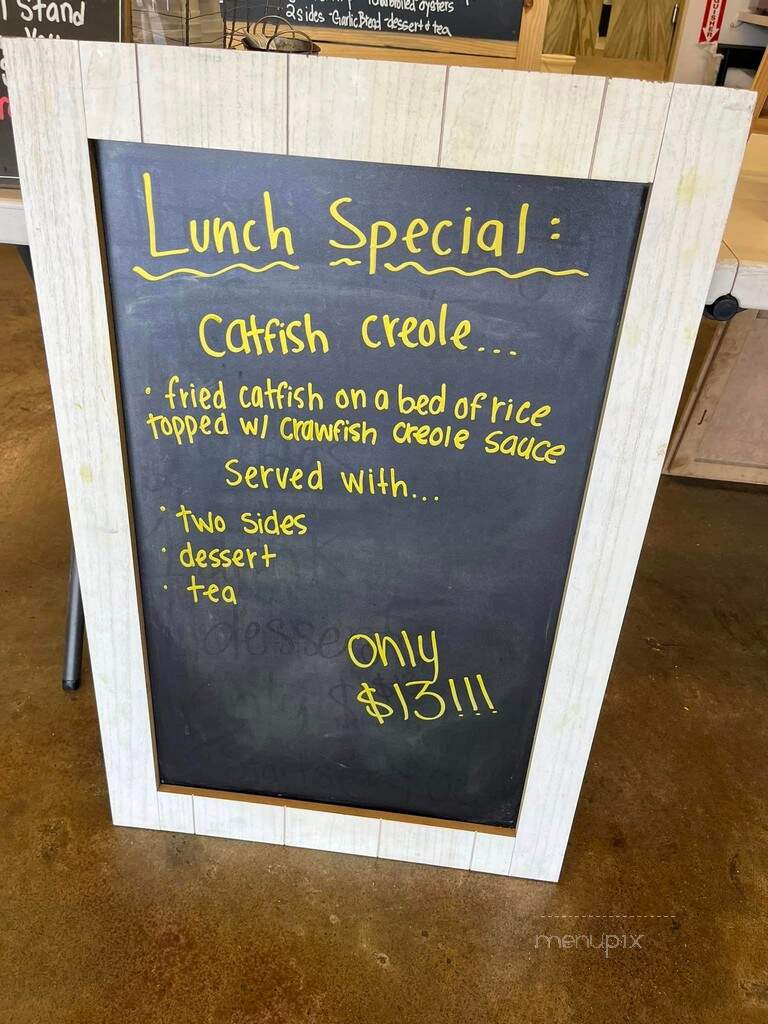 Stand
broiled oysters
2 sides - Garlic Bread - dessert & tea
Lunch Special:
Catfish Creole...
• fried catfish on a bed of rice
topped w/ crawfish creole sauce
Served with...
• two sides
• dessert
• tea
desse
only
$13!!!
menupix